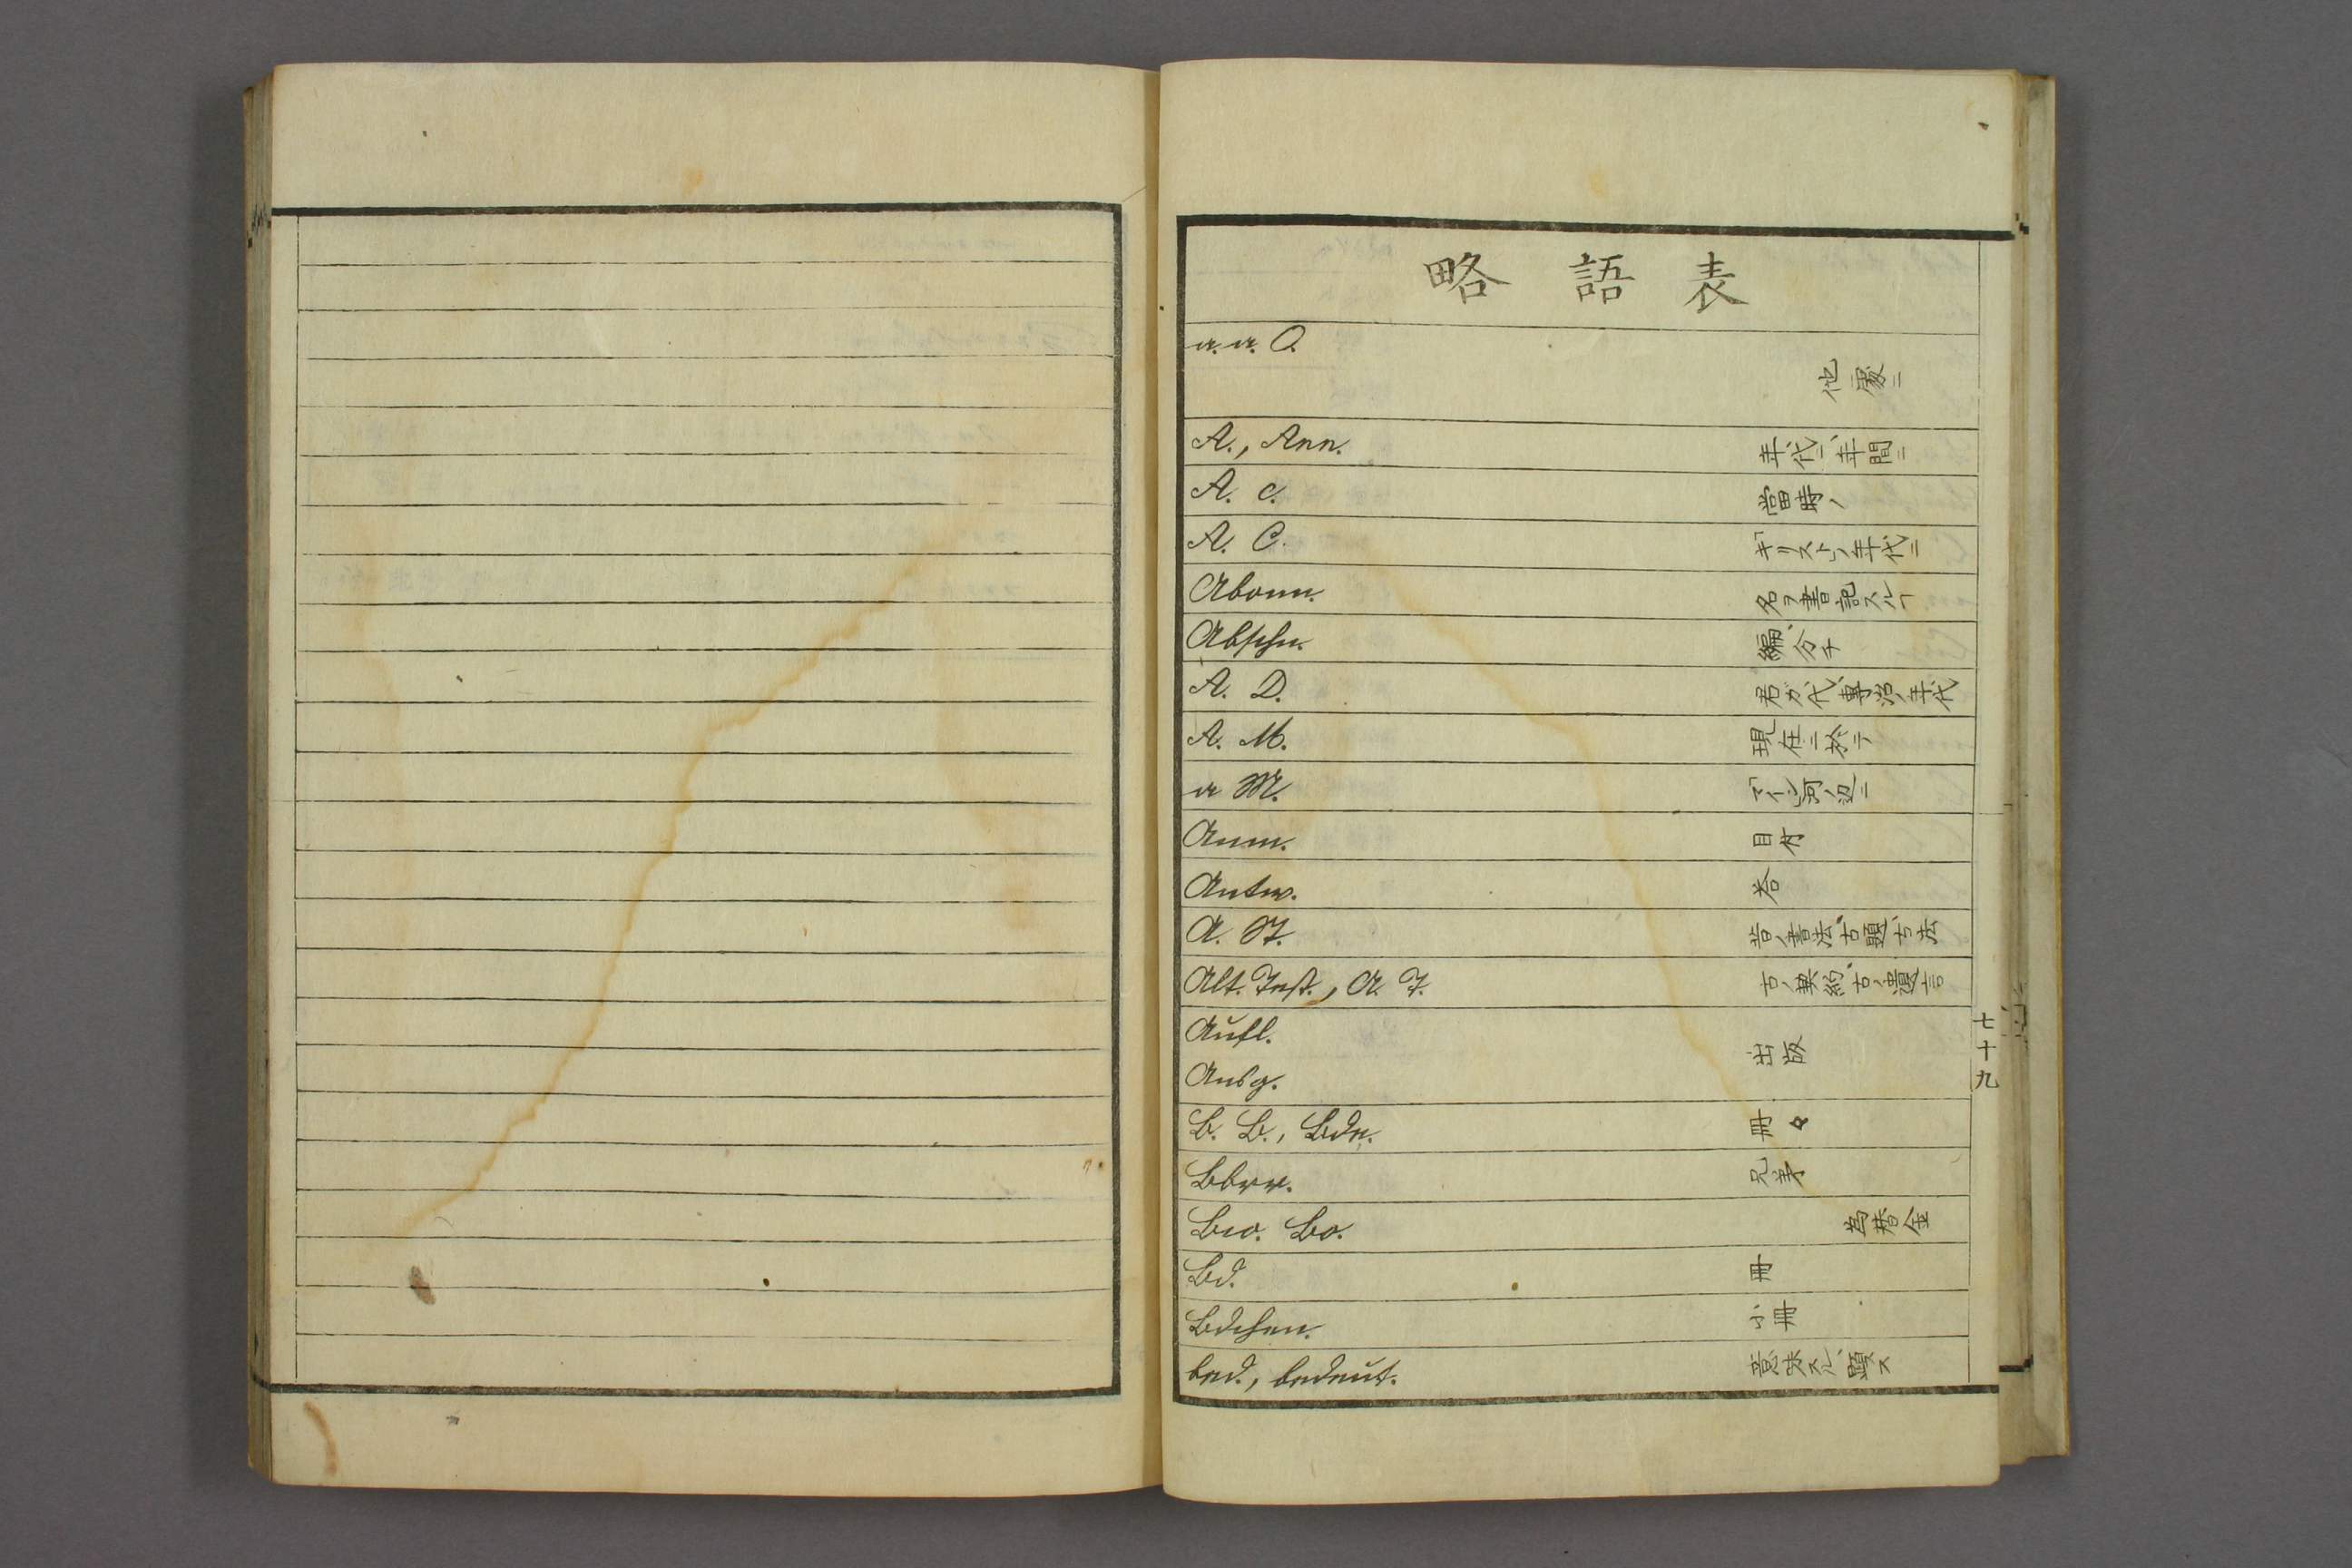 略語表
a. a. O. 他處ニ
A., Ann. 年代ニ、年間ニ
A. c. 當時ノ
A. C. 「キリスト」ノ年代ニ
Abonn. 名ヲ書記スルヿ
Abschn. 編、分チ
A. D. 君ガ代、專治ノ年代
A. M. 現在ニ於テ
a M. 「マイン」河ノ辺ニ
Anm.
Antw. 答
A. St. 昔ノ書法、古題、古法
Alt. Test., A. T. 古ノ契約、古ノ遺言
Aufl. 出版
Ausg.
B. B., Bde. 冊々
Bbrr. 兄弟
Bco. Bo. 為替金
Bd. 冊
Bdchen. 小冊
bed., bedeut. 意味スル、顕ス
七十九